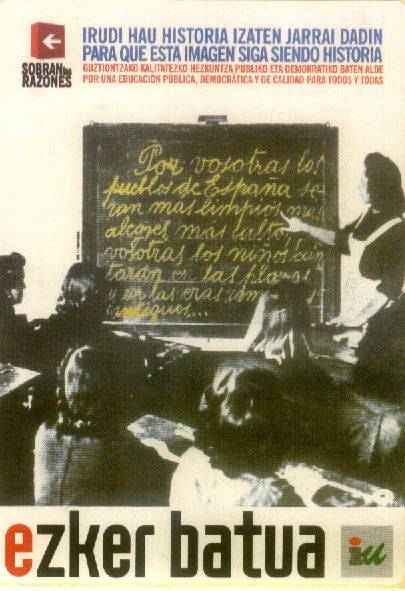 SOBRAN las
RAZONES
IRUDI HAU HISTORIA IZATEN JARRAI DADIN
PARA QUE ESTA IMAGEN SIGA SIENDO HISTORIA
GUZTIONTZAKO KALITATEZKO HEZKUNTZA PUBLIKO ETA DEMOKRATIKO BATEN ALDE
POR UNA EDUCACION PUBLICA, DEMOCRÁTICA Y DE CALIDAD PARA TODOS Y TODAS
Por vosotras los
pueblos de España se-
ran mas limpios, mas
alegres, mas cultos,
vosotras los niños can
taran en las plazas
y en las eras
ezker batua
iu